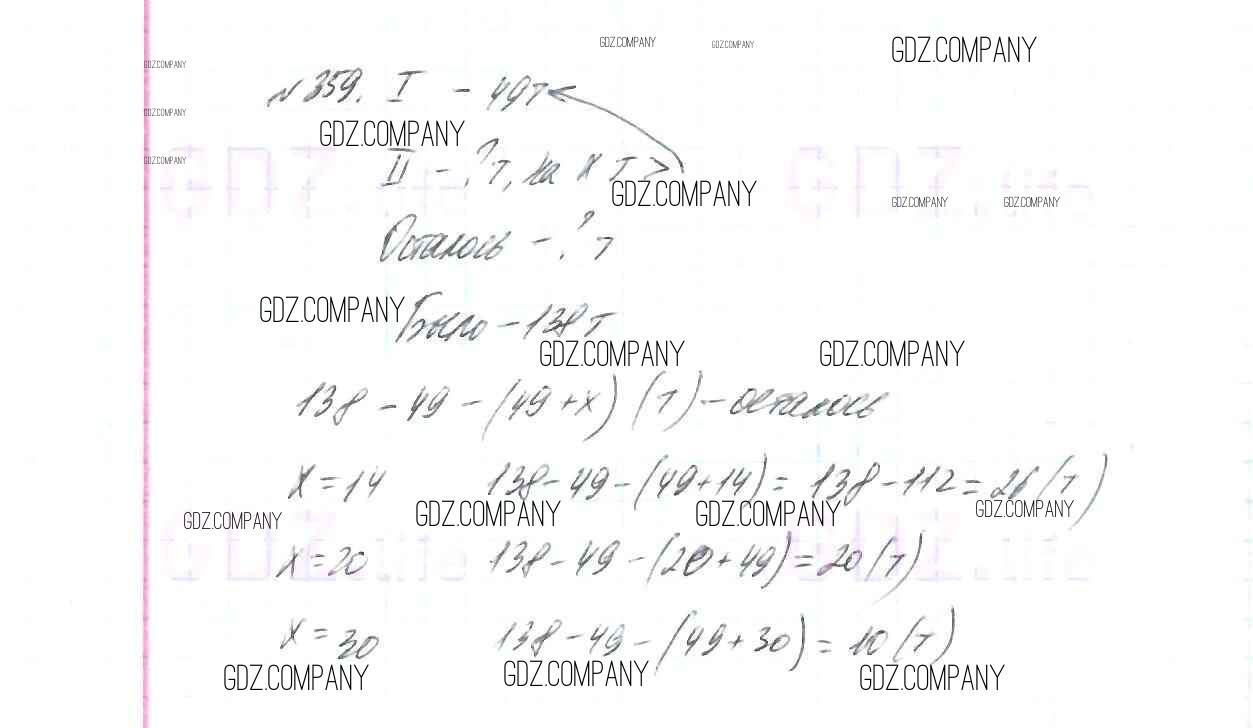 GDZ.COMPANY GDZ.COMPANY GDZ.COMPANY
GDZ.COMPANY
№ 359. I - 49т
GDZ.COMPANY
GDZ.COMPANY
GDZ.COMPANY
II - ? т, на х т >
GDZ.COMPANY
GDZ.COMPANY GDZ.COMPANY
Осталось - ? т
GDZ.COMPANY
Было - 138 т
GDZ.COMPANY GDZ.COMPANY
138 - 49 - (49 + х) (т) - осталось
х = 14 138 - 49 - (49 + 14) = 138 - 112 = 26 (т)
GDZ.COMPANY GDZ.COMPANY GDZ.COMPANY GDZ.COMPANY
х = 20 138 - 49 - (20 + 49) = 20 (т)
х = 30 138 - 49 - (49 + 30) = 10 (т)
GDZ.COMPANY GDZ.COMPANY GDZ.COMPANY